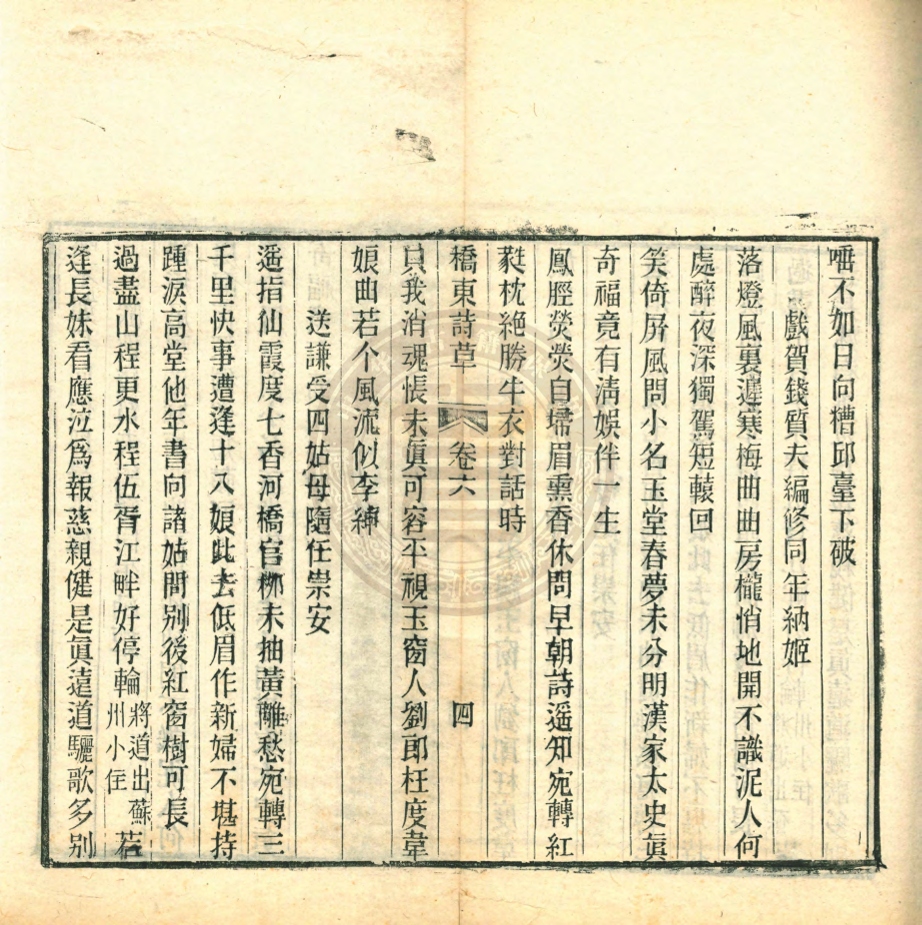 噎不如日向槽邱臺下破
戲賀錢質夫編修同年納姬
落燈風裏遽寒梅曲曲房櫳悄地開不識泥人何
處醉夜深獨駕短轅回
笑倚屏風問小名玉堂春夢未分明漢家太史眞
奇福竟有淸娛伴一生
鳳脛熒熒自埽眉熏香休問早朝詩遥知宛轉紅
蕤枕絶勝牛衣對話時
橋東詩草 卷六 四
只我消魂悵未眞可容平視玉窗人劉郎枉度韋
娘曲若个風流似李紳
送謙受四姑母隨任崇安
遥指仙霞度七香河橋官桺未抽黃離愁宛轉三
千里快事遭逢十八娘此去低眉作新婦不堪持
踵淚高堂他年書向諸姑問别後紅窗樹可長
過盡山程更水程伍胥江畔好停輪將道出蘇州小住若
逢長妹看應泣爲報慈親健是眞遠道驪歌多别